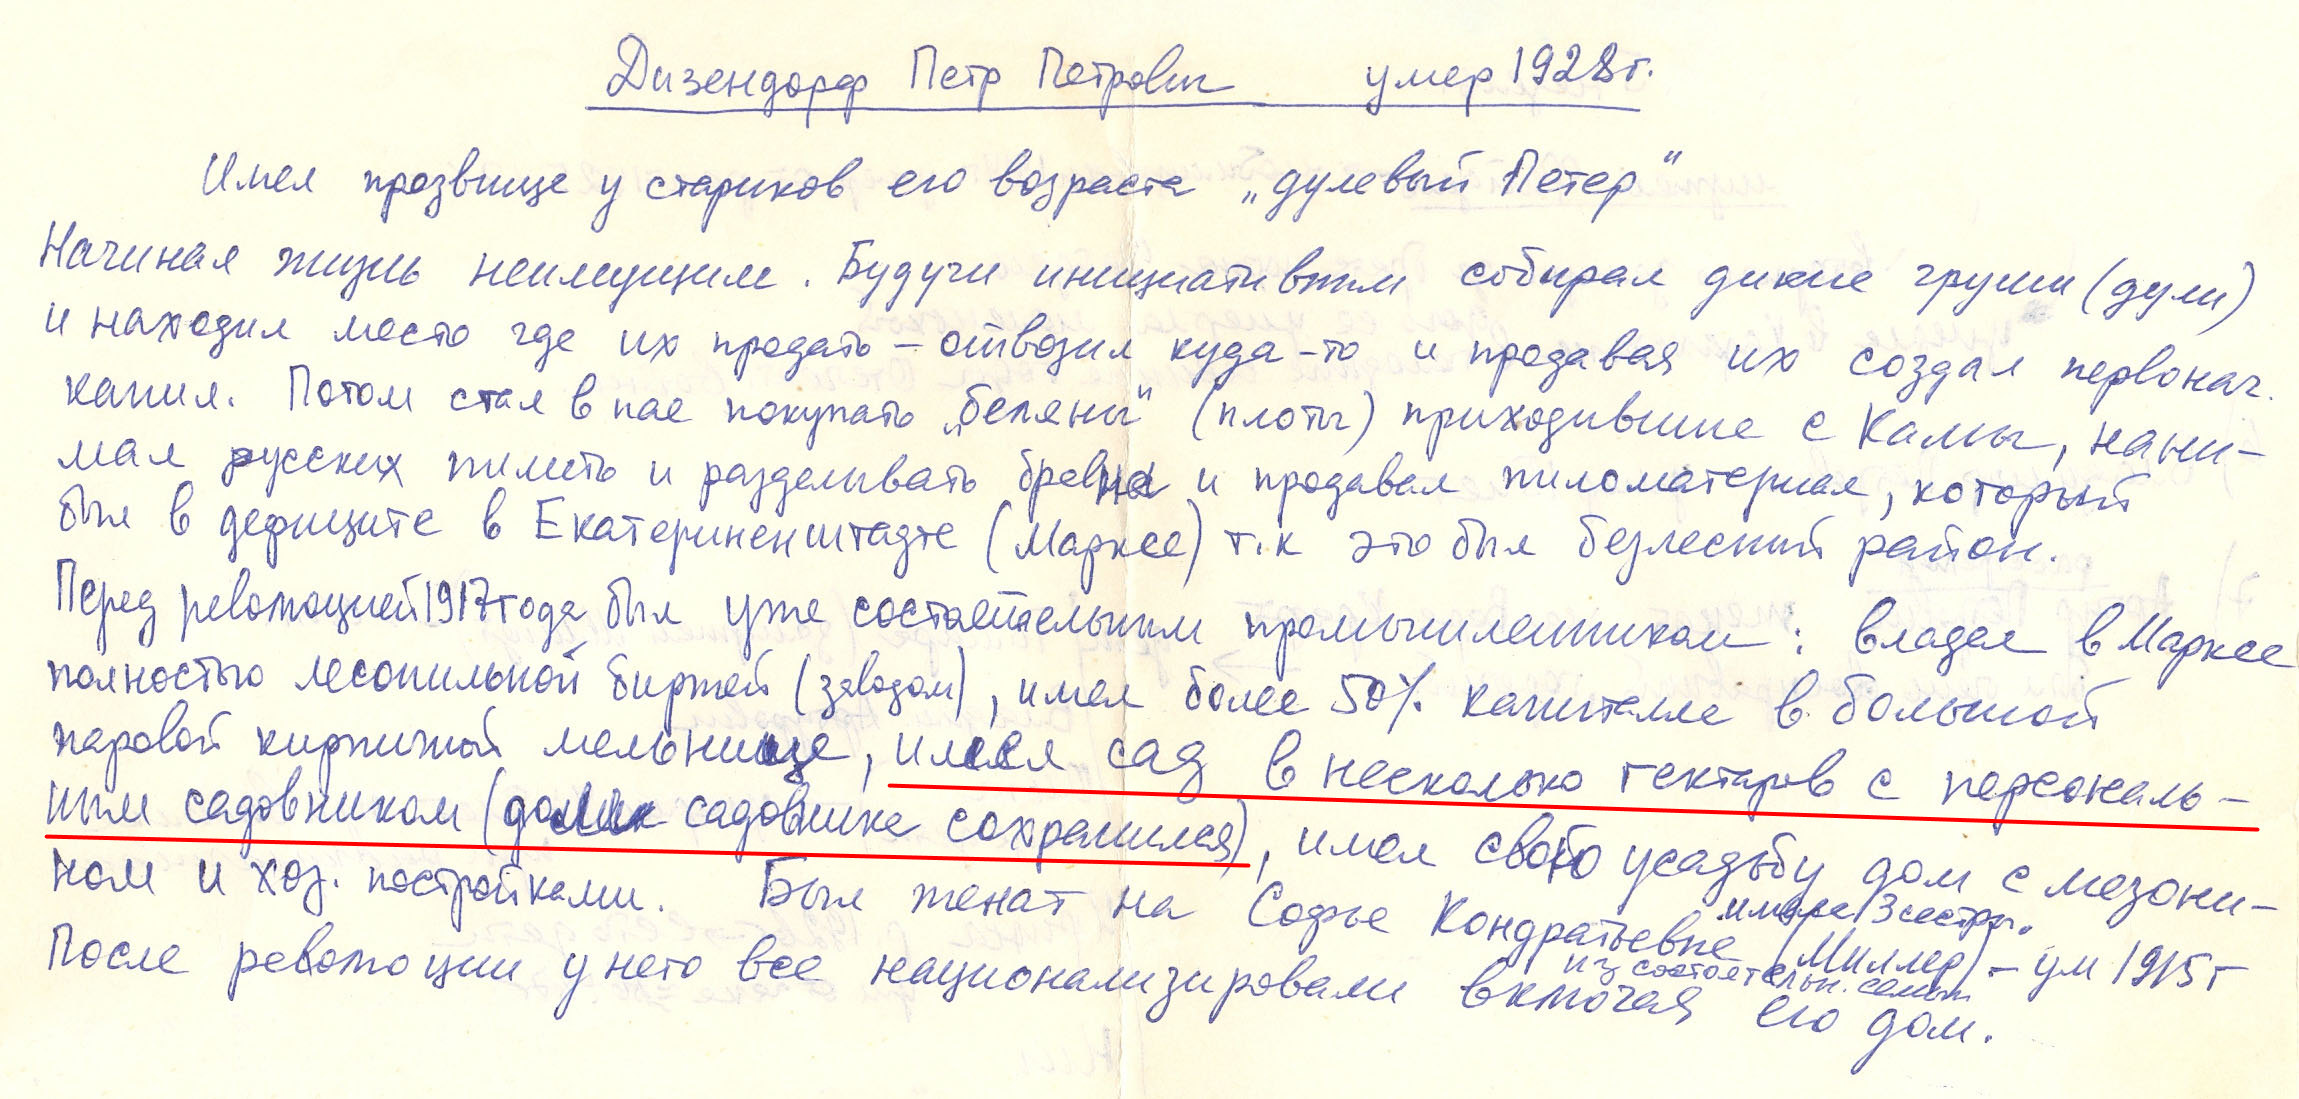 Дизендорф Петр Петрович умер 1928 г.
Имел прозвище у стариков его возраста „дулевый Петер"
Начинал жизнь неимущим. Будучи инициативным собирал дикие груши (дули)
и находил место где их продать – отвозил куда-то и продавая их создал первонач.
капил. Потом стал в пае покупать „беляны" (плоты) приходившие с Камы, нани-
мал русских пилить и разделывать бревна и продавал пиломатериал, который
был в дефиците в Екатериненштадте (Марксе) т.к это был безлесный район.
Перед революцией 1917 года был уже состоятельным промышленником: владел в Марксе
полностью лесопильной биржей (заводом), имел более 50% капитала в большой
паровой кирпичной мельнице, имел сад в несколько гектаров с персональ-
ным садовником (домик садовника сохранился), имел свою усадьбу дом с мезони-
ном и хоз. постройками. Был женат на Софье Кондратьевне (Миллер) – ум 1915 г
имела 3 сестры.
из состоятельн. семьи
После революции у него все национализировали включая его дом.